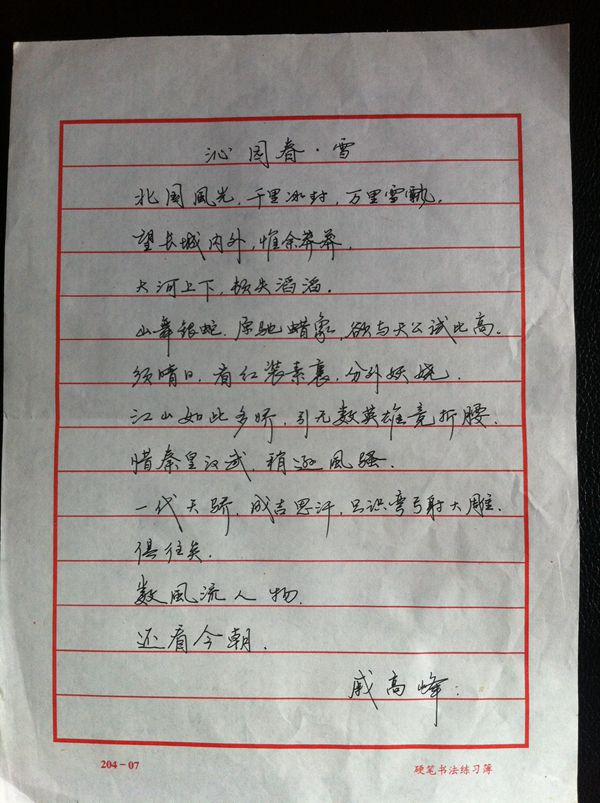 沁园春·雪
北国風光,千里冰封,万里雪飘.
望长城内外,惟余莽莽,
大河上下,顿失滔滔.
山舞银蛇.原驰蜡象,欲与天公试比高.
须晴日,看红装素裹,分外妖娆.
江山如此多娇,引无数英雄竞折腰.
惜秦皇汉武,稍逊風骚.
一代天骄,成吉思汗,只识弯弓射大雕.
俱往矣.
数風流人物.
还看今朝.
戚高峰.
204-07 硬笔书法练习簿